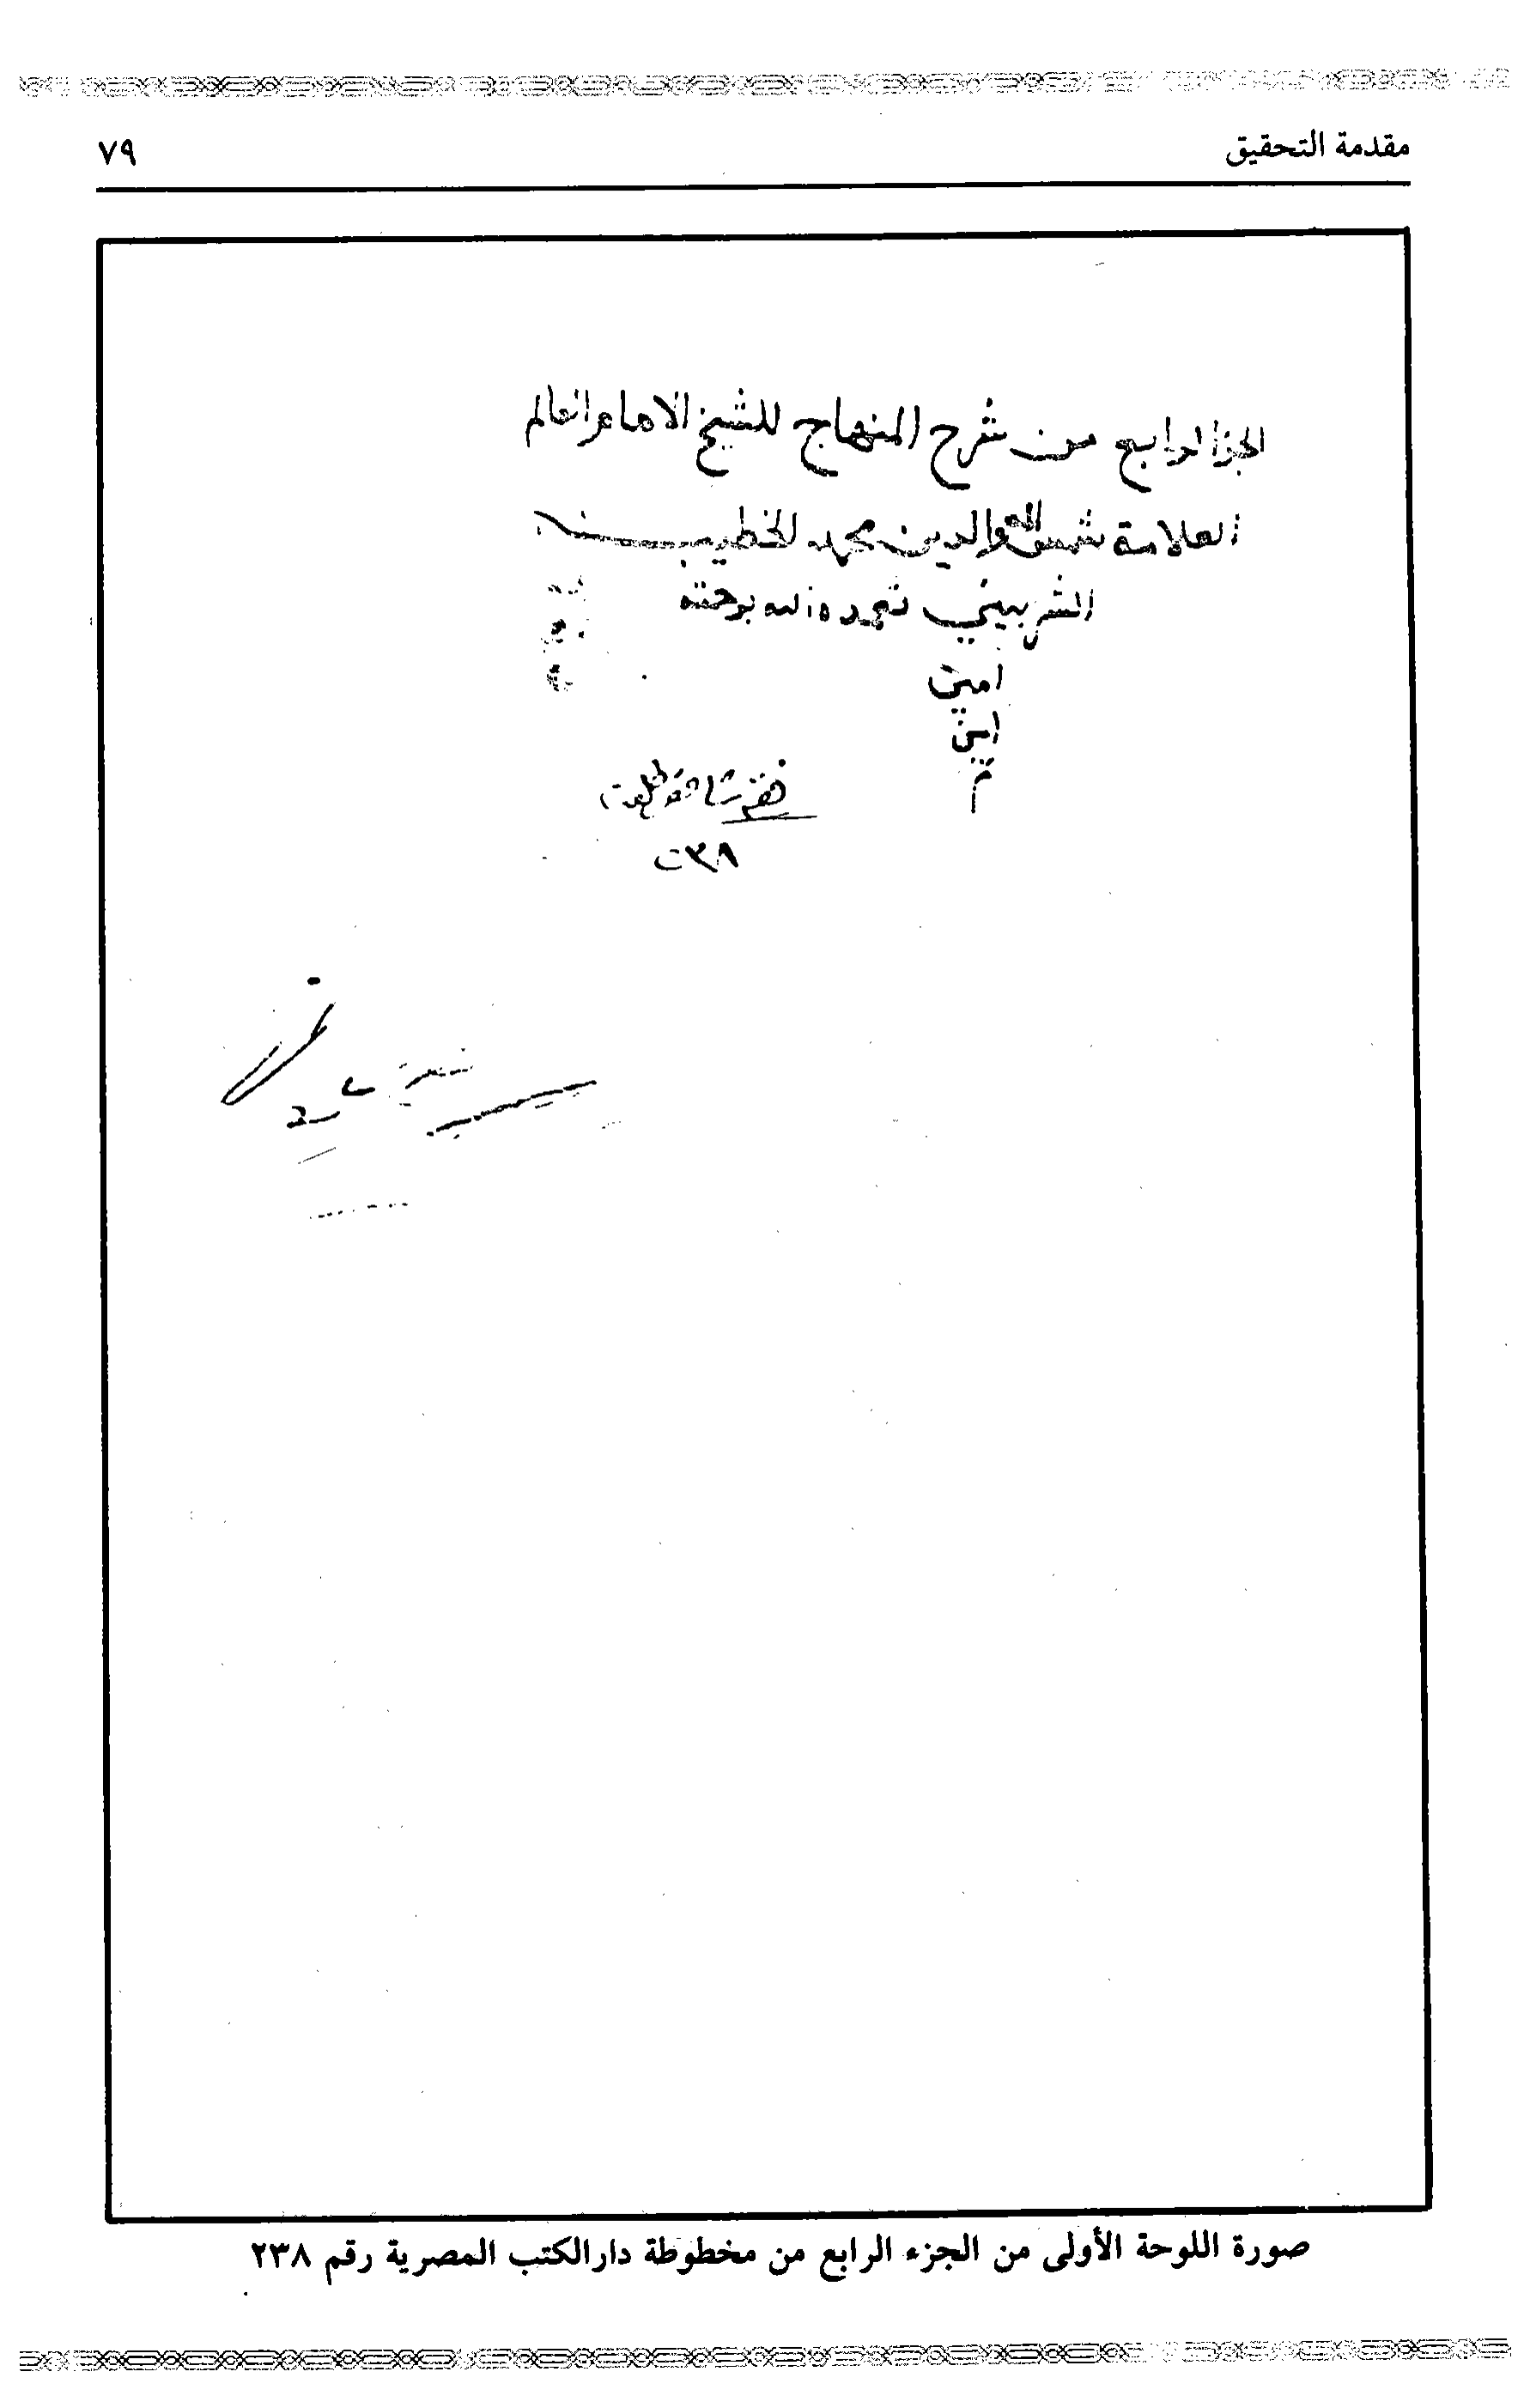 مقدمة التحقيق ٧٩
الجزا الرابع من شرح المنهاج للشيخ الامام العالم
العلامة شمس والدين محمد الخطيب
الشربيني تغمده الله برحمته
امين
امين
م
٢٣٨
صورة اللوحة الأولى من الجزء الرابع من مخطوطة دار الكتب المصرية رقم ٢٣٨